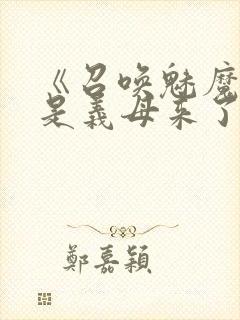 《召唤魅魔
是義母来了
鄭嘉穎